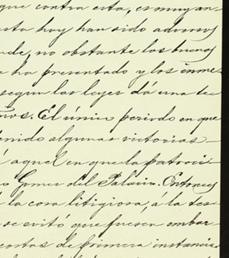 que contra esta, es muy an-
sta hoy han sido adversos
de, no obstante las buenas
a ha presentado y los inme
segun las leyes dá una de
El único periodo en que
enido algunas victorias
aquel en que la patroci
Gomez del Palacio. Entonces
la cosa litigiosa, á la tes
se evitó que fuesen embar
centas de primera instancia